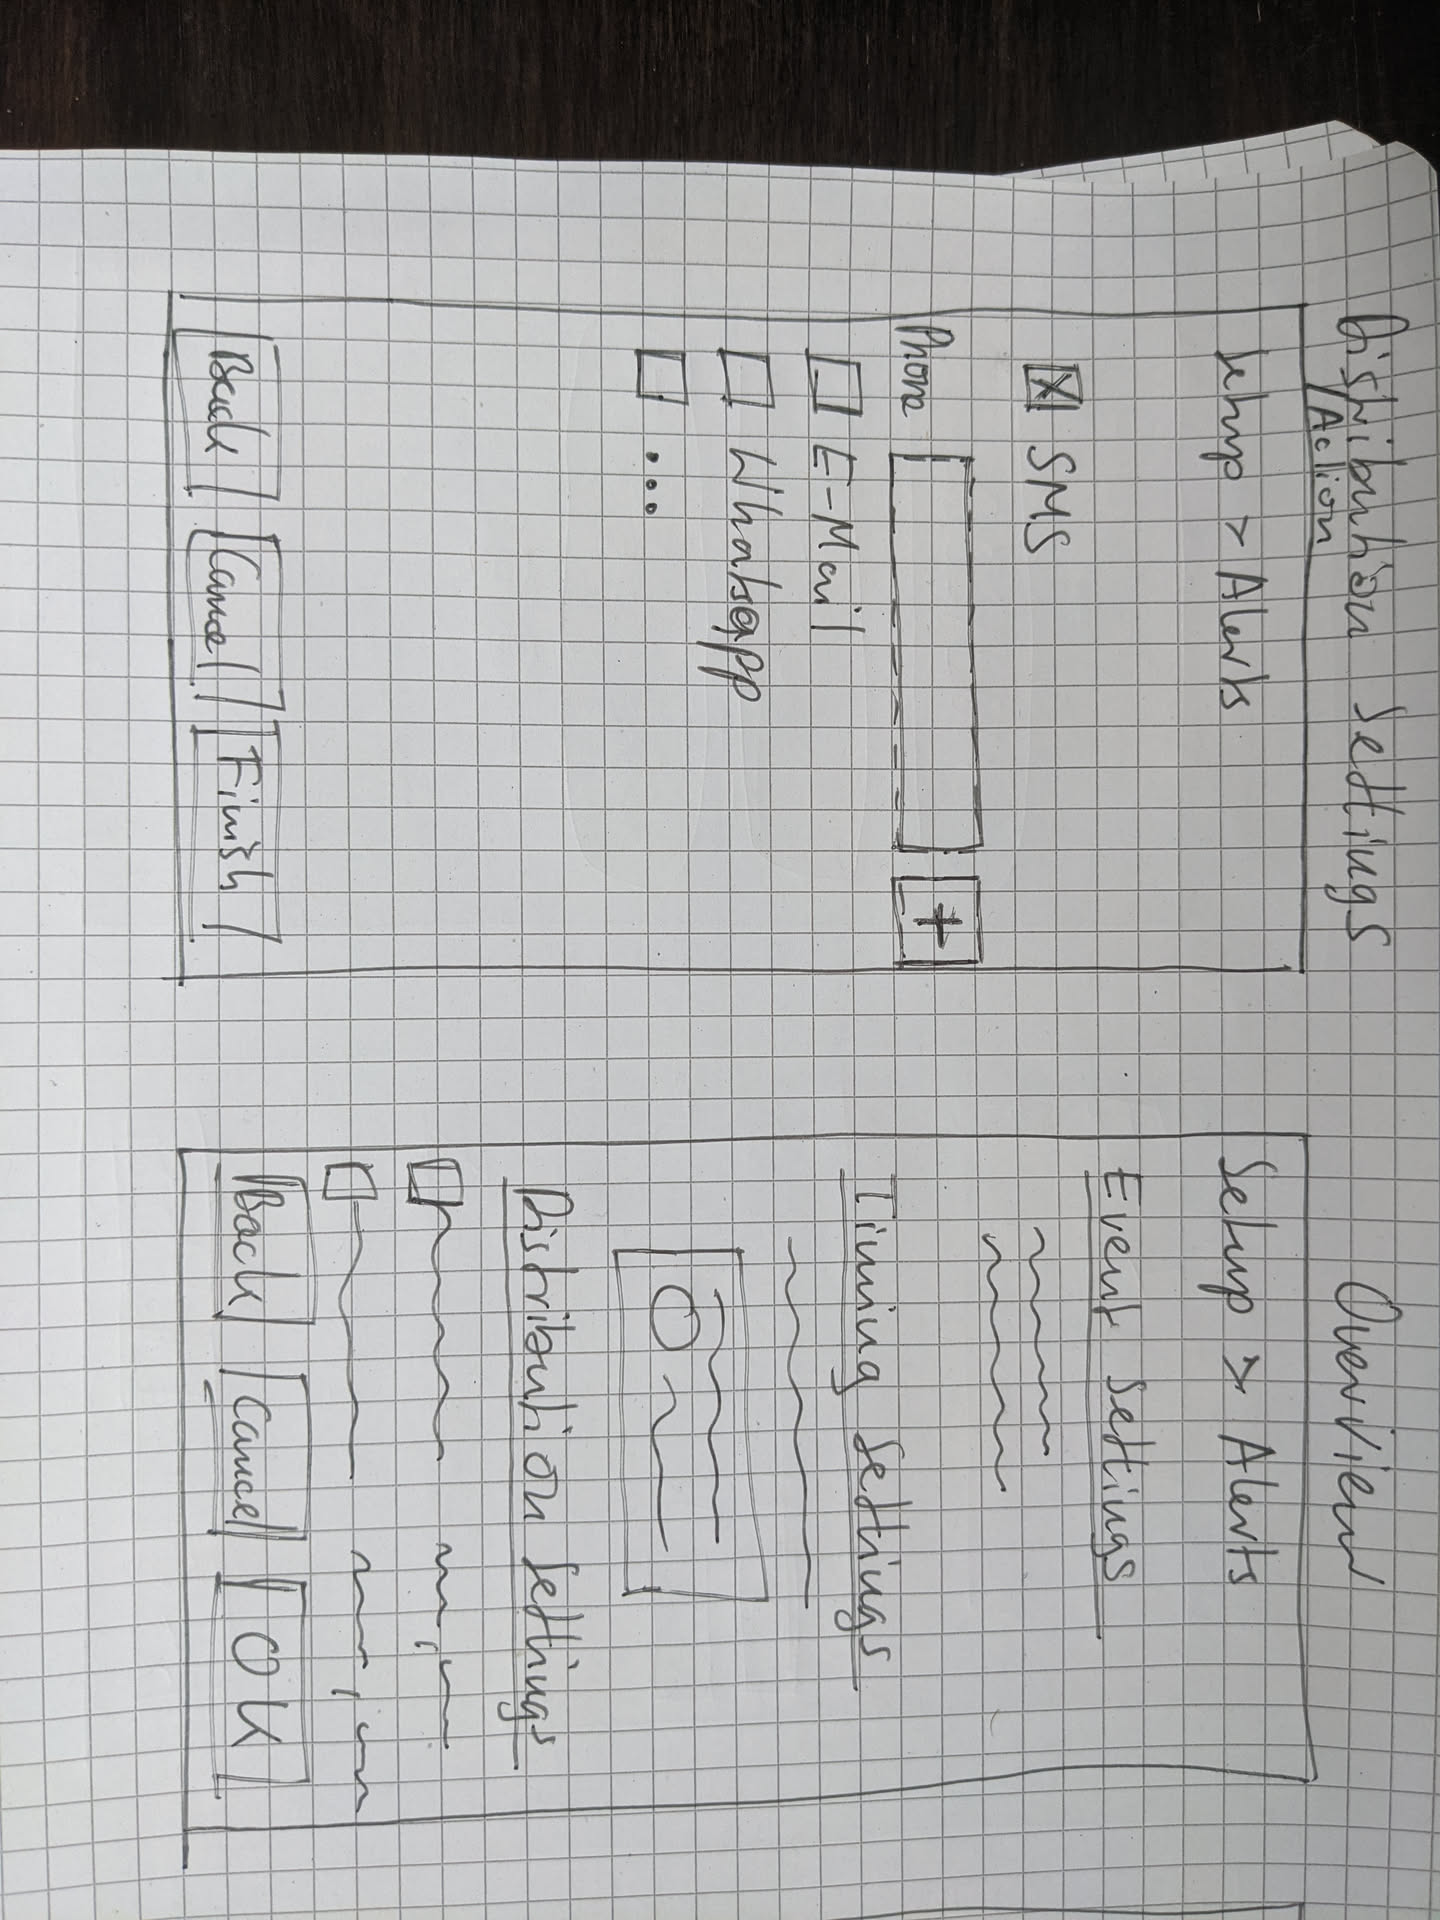 Distribution Settings
/Action
Setup > Alerts
X SMS
Phone +
E-Mail
Whatsapp
...
Back Cancel Finish
Overview
Setup > Alerts
Event Settings
Timing Settings
Distribution Settings
Back Cancel OK